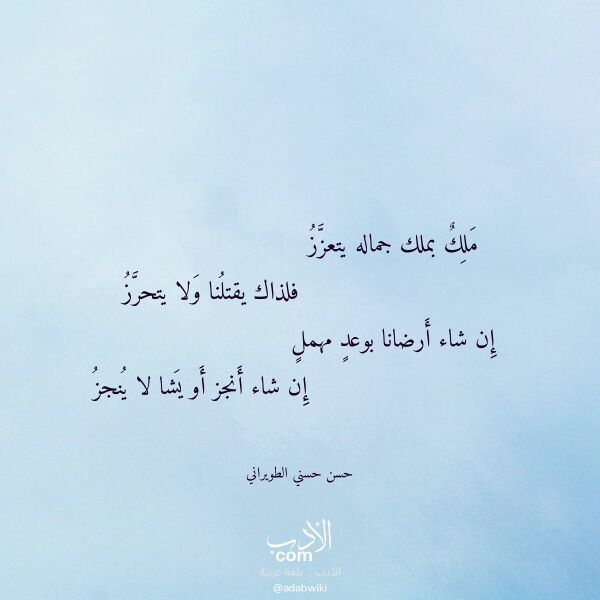 مَلِكٌ بملك جماله يتعزَّزُ
فلذاك يقتلُنا وَلا يتحرَّزُ
إِن شاء أَرضانا بوعدٍ مهملٍ
إِن شاء أَنجز أَو يَشا لا يُنجزُ
حسن حسني الطويراني
الأدب
com
الأدب .. بلغة عربية
@adabwiki